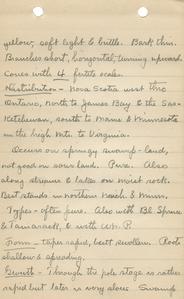 yellow, soft light & brittle. Bark thin.
Branches short, horizontal, turning upward.
Cones with 4 fertile scales.
Distribution - Nova Scotia west thro
Ontario, north to James Bay & the Sas-
Ketchewan, south to Maine & Minnesota
in the high Mts. to Virginia.
Occurs on springy swamp-land,
not good on sour land. Pure. Also
along streams & lakes on moist rock.
Best stands in northern Mich. & Minn.
Types - often pure. Also with Bl. Spruce
& Tamarack, & with W. P.
Form - taper rapid, butt swollen. Roots
shallow & spreading.
Growth - Through the pole stage is rather
rapid but later is very slow. Swamp